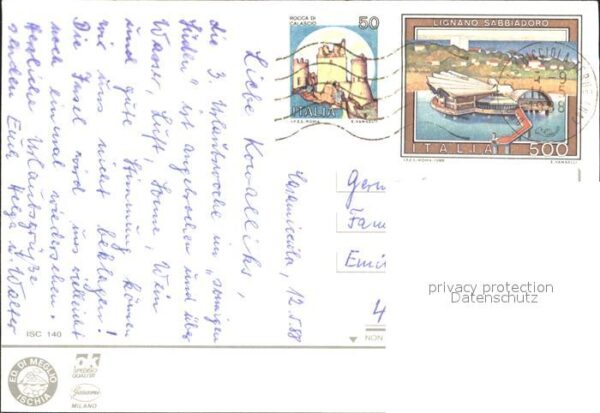 Casamicciola, 12.5.88
Liebe Kowallicks,
die 3. Urlaubswoche im "sonnigen
Süden" ist angebrochen und über
Wasser, Luft, Sonne, Wein
und gute Stimmung können
wir uns nicht beklagen!
Die Insel wird uns vielleicht
noch einmal wiedersehen.
Herzliche Urlaubsgrüße
senden Euch Helga u. Walter
ROCCA DI
CALASCIO
50
ITALIA
I.P.Z.S.-ROMA
E. VANGELLI
LIGNANO SABBIADORO
ITALIA 500
I.P.Z.S.-ROMA-1986
E. VANGELLI
Germ
Fam
Emi
4
NON
privacy protection
Datenschutz
ISC 140
ED. DI MEGLIO
ISCHIA
ak
MILANO